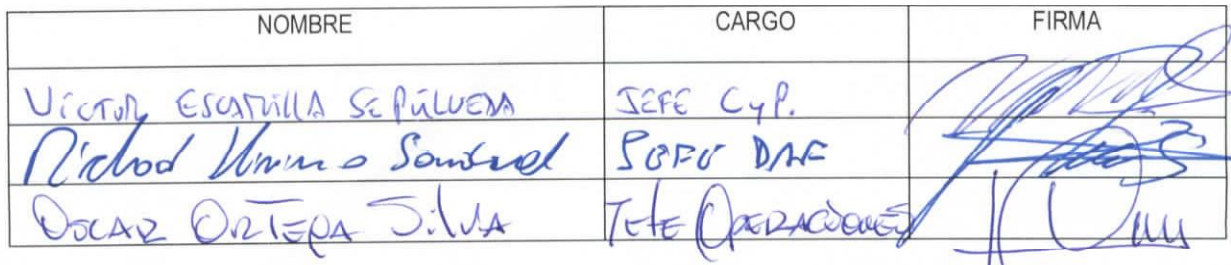 NOMBRE CARGO FIRMA
VÍCTOR ESCAMILLA SEPÚLVEDA JEFE CyP.
Sandoval DAF
OSCAR ORTEGA SILVA JEFE OPERACIONES